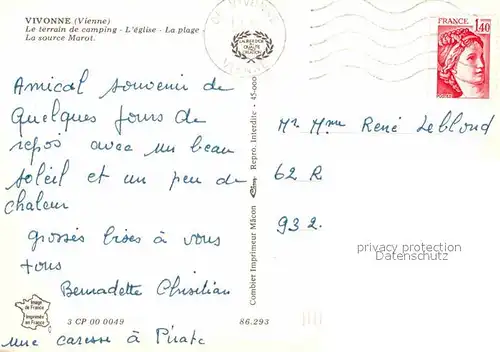 VIVONNE (Vienne)
Le terrain de camping - L'église - La plage
La source Marot.
VIVONNE
VIENNE
FRANCE
1,40
Amical souvenir de
quelques jours de
repos avec un beau
soleil et un peu de
chaleur
grosses bises à vous
tous
Bernadette Christian
une caresse à Pirate
Combier Imprimeur Mâcon
Repro. Interdite - 45-000
Mr Mme René Leblond
62 R
932.
privacy protection
Datenschutz
Image
de France
Imprimée
en France
3 CP 00 0049
86.293